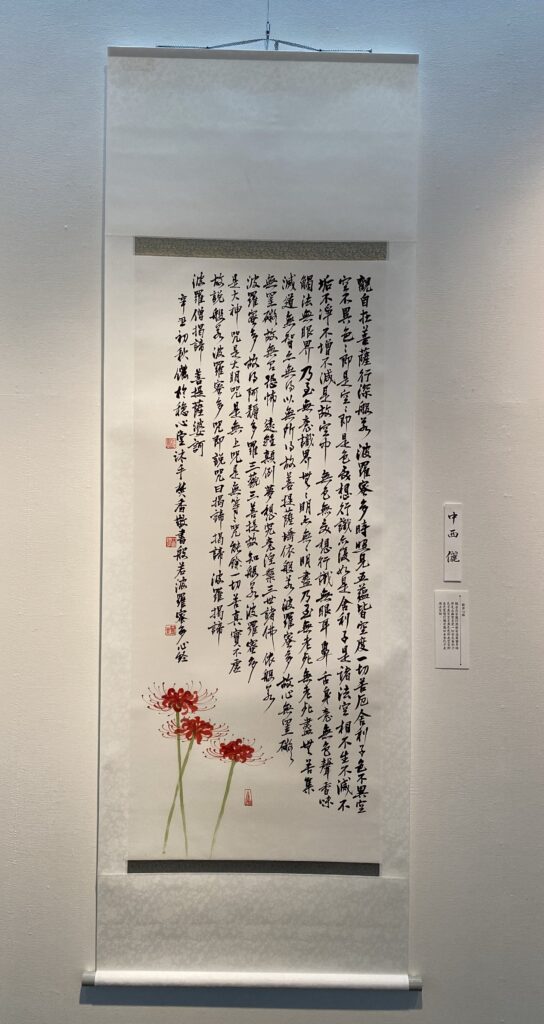 觀自在菩薩行深般若波羅蜜多時照見五蘊皆空度一切苦厄舍利子色不異空
空不異色々即是空々即是色受想行識亦復如是舍利子是諸法空相不生不滅不
垢不淨不增不減是故空中無色無受想行識無眼耳鼻舌身意無色聲香味
觸法無眼界乃至無意識界無々明亦無々明盡乃至無老死無老死盡無苦集
滅道無智亦無得以無所得故菩提薩埵依般若波羅蜜多故心無罣礙々
無罣礙故無有恐怖遠離顛倒夢想究竟涅槃三世諸佛依般若
波羅蜜多故得阿耨多羅三藐三菩提故知般若波羅蜜多
是大神咒是大明咒是無上咒是無等々咒能除一切苦真實不虛
故說般若波羅蜜多咒即說咒曰揭諦揭諦波羅揭諦
波羅僧揭諦菩提薩婆訶
辛丑初秋儷於穩心堂沐手焚香敬書般若波羅蜜多心經
中西 儷